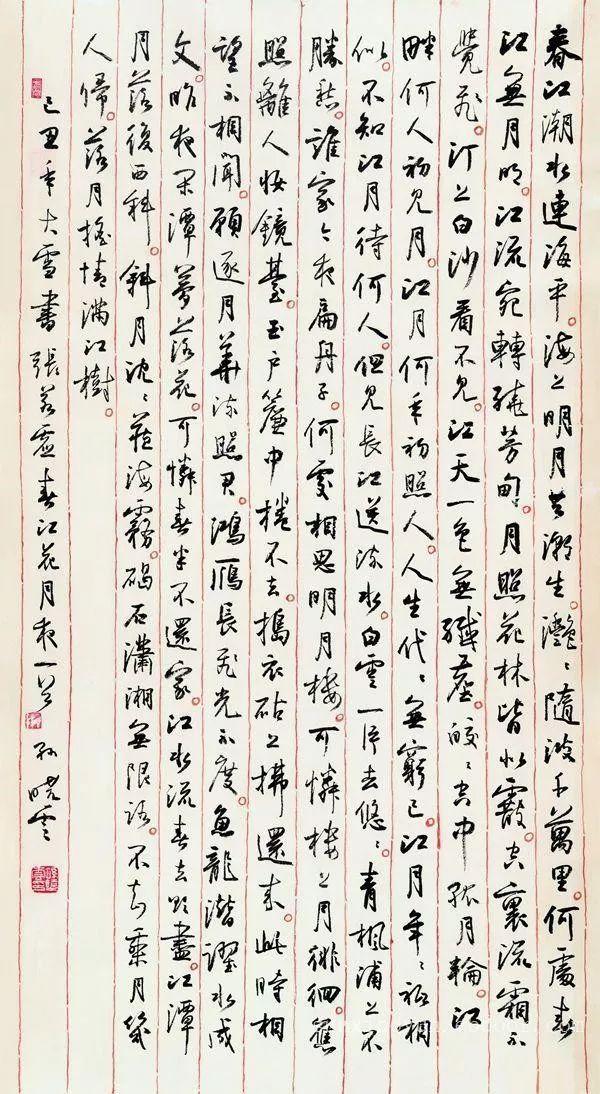 春江潮水連海平。海上明月共潮生。灔〻隨波千萬里。何處春
江無月明。江流宛轉繞芳甸。月照花林皆似霰。空裏流霜不
覺飛。汀上白沙看不見。江天一色無纖塵。皎〻空中孤月輪。江
畔何人初見月。江月何年初照人。人生代〻無窮已。江月年〻祇相
似。不知江月待何人。但見長江送流水。白雲一片去悠〻。青楓浦上不
勝愁。誰家今夜扁舟子。何處相思明月樓。可憐樓上月徘徊。應
照離人妝鏡臺。玉戶簾中捲不去。搗衣砧上拂還來。此時相
望不相聞。願逐月華流照君。鴻雁長飛光不度。魚龍潛躍水成
文。昨夜閑潭夢落花。可憐春半不還家。江水流春去欲盡。江潭
月落復西斜。斜月沈〻藏海霧。碣石瀟湘無限路。不知乘月幾
人歸。落月搖情滿江樹。
己丑年大雪書張若虛春江花月夜一首 孫曉雲